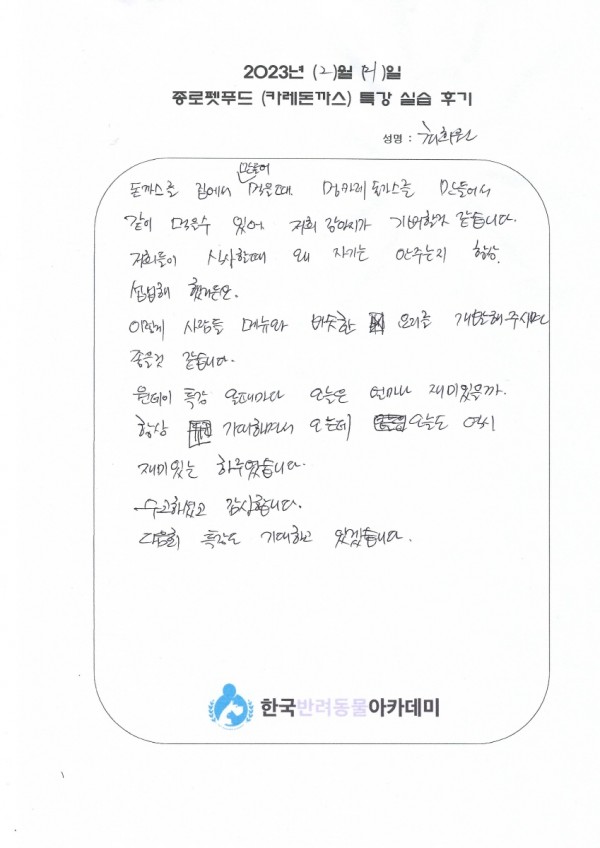 2023년 (2)월 (21)일
종로펫푸드 (카레돈까스) 특강 실습 후기
성명 :
만들어
돈까스를 집에서 먹을때 멍카레 돈까스를 만들어서
같이 먹을수 있어 저희 강아지가 기뻐할것 같습니다.
저희들이 식사할때 왜 자기는 안주는지 항상
섭섭해 했거든요.
이렇게 사람들 메뉴와 비슷한 요리를 개발해주시면
좋을것 같습니다.
원데이 특강 올때마다 오늘은 얼마나 재미있을까.
항상 기대하면서 오는데 오늘도 역시
재미있는 하루였습니다.
수고하셨고 감사합니다.
다음회 특강도 기대하고 있겠습니다.
한국반려동물아카데미